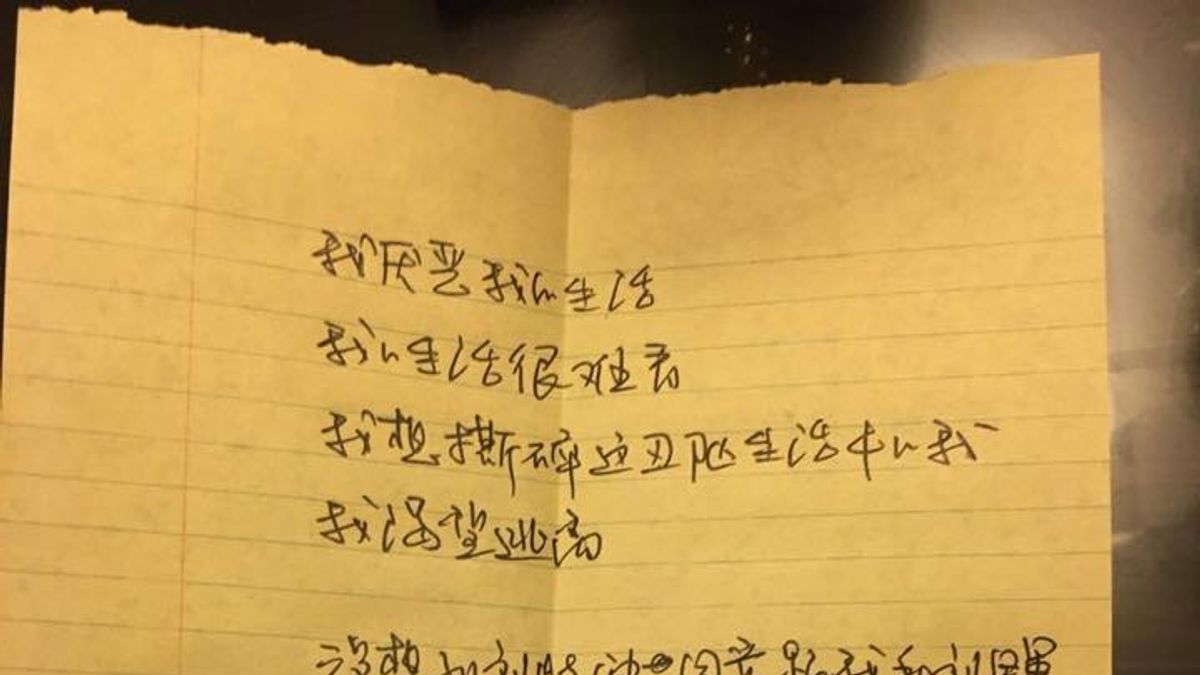 我厌恶我的生活
我的生活很难看
我想撕碎这丑陋生活中的我
我渴望逃离
没想到刘